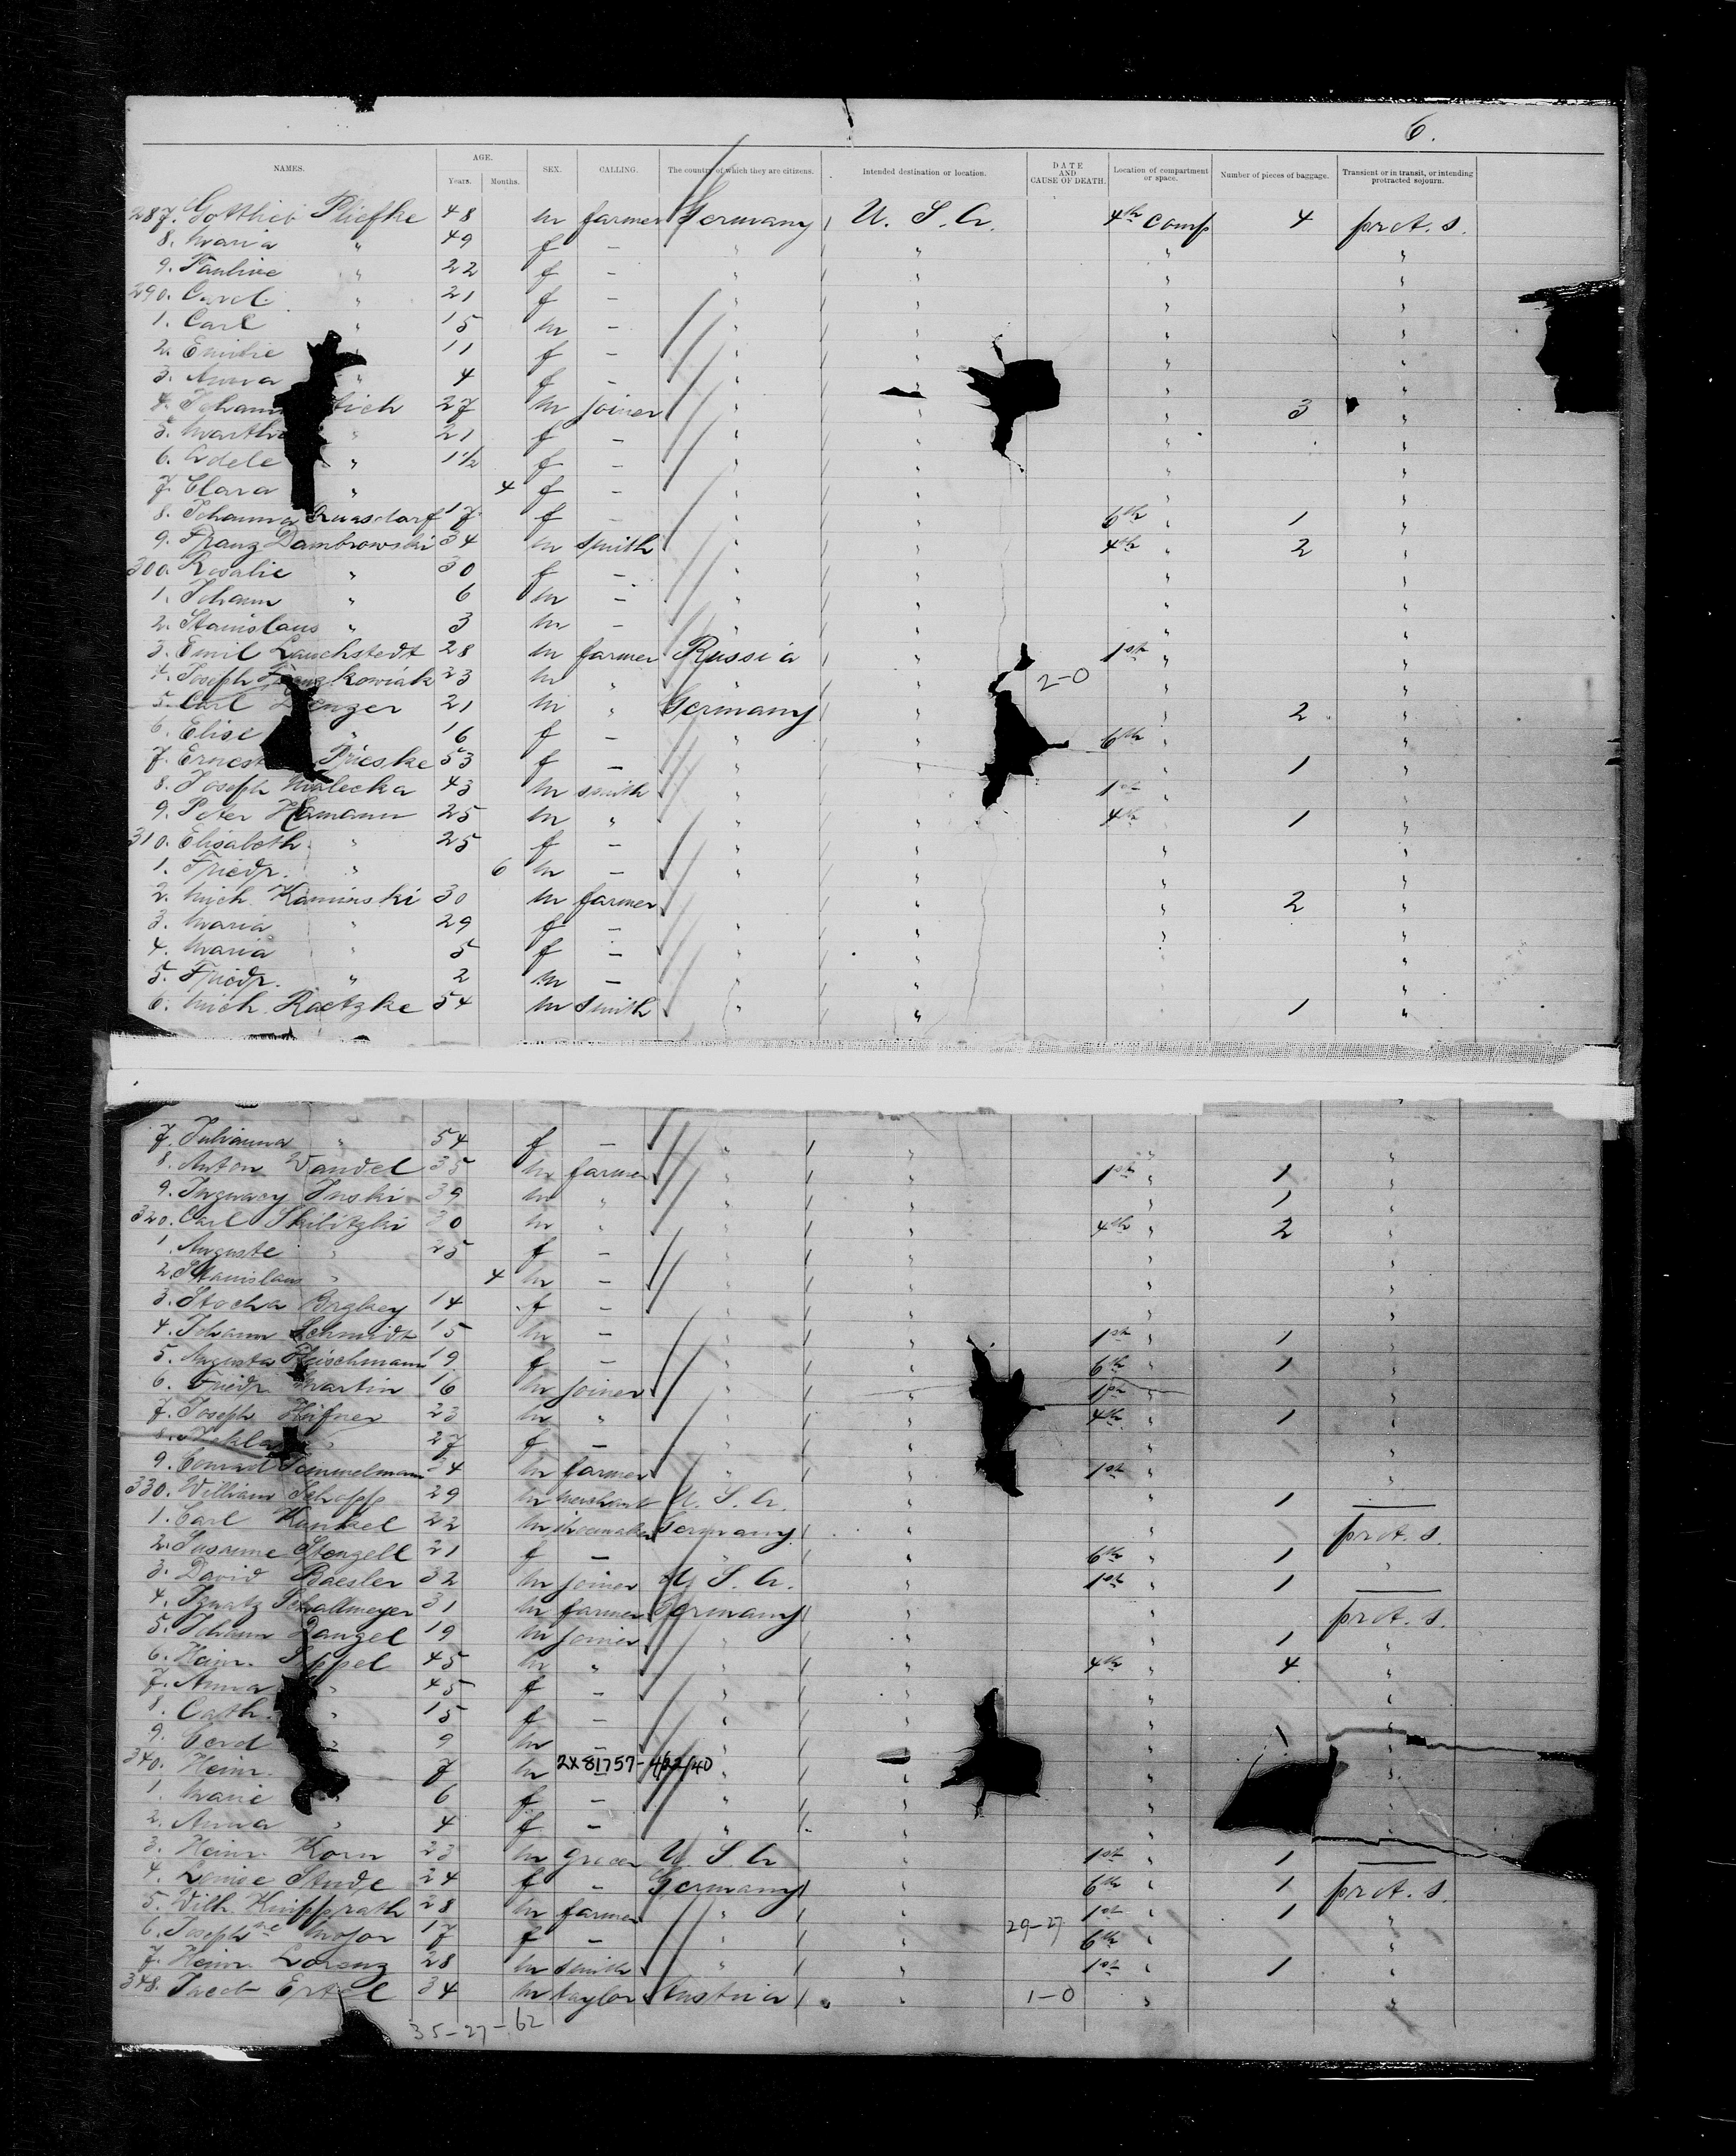 6.
NAMES. AGE. Years. Months. SEX. CALLING. The country of which they are citizens. Intended destination or location. DATE AND CAUSE OF DEATH. Location of compartment or space. Number of pieces of baggage. Transient or in transit, or intending protracted sojourn.
287. Gottlieb 48 m farmer Germany U. S. A. 4th Comp 4 prot. s.
8. Maria " 49 f — " " " "
9. Pauline " 22 f — " " " "
290. Carol. " 21 f — " " " "
1. Carl " 15 m — " " " "
2. Emilie 11 f — " " " "
3. Anna " 4 f — " " " "
4. Johann 27 m joiner " " " 3 "
5. Martha " 21 f — " " " "
6. Adele " 1 1/2 f — " " " "
7. Clara " 4 f — " " " "
8. Johanna 17 f — " " 6th " 1 "
9. Franz Dambrowski 34 m smith " " 4th " 2 "
300. Rosalie " 30 f — " " " "
1. Johann " 6 m — " " " "
2. Stanislaus " 3 m — " " " "
3. Emil Lauchstedt 28 m farmer Russia " 1st " "
4. Joseph 23 m " " " 2-0 " "
5. Carl 21 m " Germany " " 2 "
6. Elise " 16 f — " " 6th " "
7. Prieske 53 f — " " " 1 "
8. Joseph Malecka 43 m smith " " 1st " "
9. Peter Hamann 25 m " " " 4th " 1 "
310. Elisabeth " 25 f — " " " "
1. Friedr. " 6 m — " " " "
2. Mich. Kaminski 30 m farmer " " " 2 "
3. Maria " 29 f — " " " "
4. Maria " 5 f — " " " "
5. Friedr. " 2 m — " " " "
6. Mich. Raetzke 54 m smith " " 1 "
7. Julianna " 54 f — " " " "
8. Anton Wandel 35 m farmer " " 1st " 1 "
9. Inski 39 m " " " " 1 "
320. Carl Skibitzki 30 m " " " 4th " 2 "
1. Auguste " 25 f — " " " "
2. Stanislaus " 4 m — " " " "
3. Stocha 14 f — " " " "
4. Johann Schmidt 15 m — " " 1st " 1 "
5. Augusta Fleischmann 19 f — " " 6th " 1 "
6. Friedr. Martin 16 m joiner " " 1st " "
7. Joseph Häfner 23 m " " " 4th " 1 "
8. Thekla " 27 f — " " " "
9. Conrad 34 m farmer " " 1st " "
330. William Schopp 29 m merchant U. S. A. " " 1 —
1. Carl Kunkel 22 m shoemaker Germany " " prot. s.
2. Susanne Stengell 21 f — " " 6th " 1 "
3. David Baesler 32 m joiner U. S. A. " 1st " 1 —
4. Ignatz Schallmeyer 31 m farmer Germany " " prot. s.
5. Johann Dangel 19 m joiner " " " 1 "
6. Heinr. 45 m " " " 4th " 4 "
7. Anna " 45 f — " " " "
8. Cath. " 15 f — " " " "
9. Gerd " 9 m — " " " "
340. Heinr. 7 m 2X81757-462/40 " " "
1. Marie " 6 f — " " " "
2. Anna " 4 f — " " "
3. Heinr. Korn 23 m grocer U. S. A " 1st " 1 —
4. Louise Stude 24 f " Germany " 6th " 1 prot. s.
5. Wilh. Knipprath 28 m farmer " " 1st " 1 "
6. Josephine 17 f — " " 29-27 6th " "
7. Heinr. Lorenz 28 m smith " " 1st " 1 "
348. Jacob Ertel 34 m taylor Austria " 1-0 " "
35-27-62